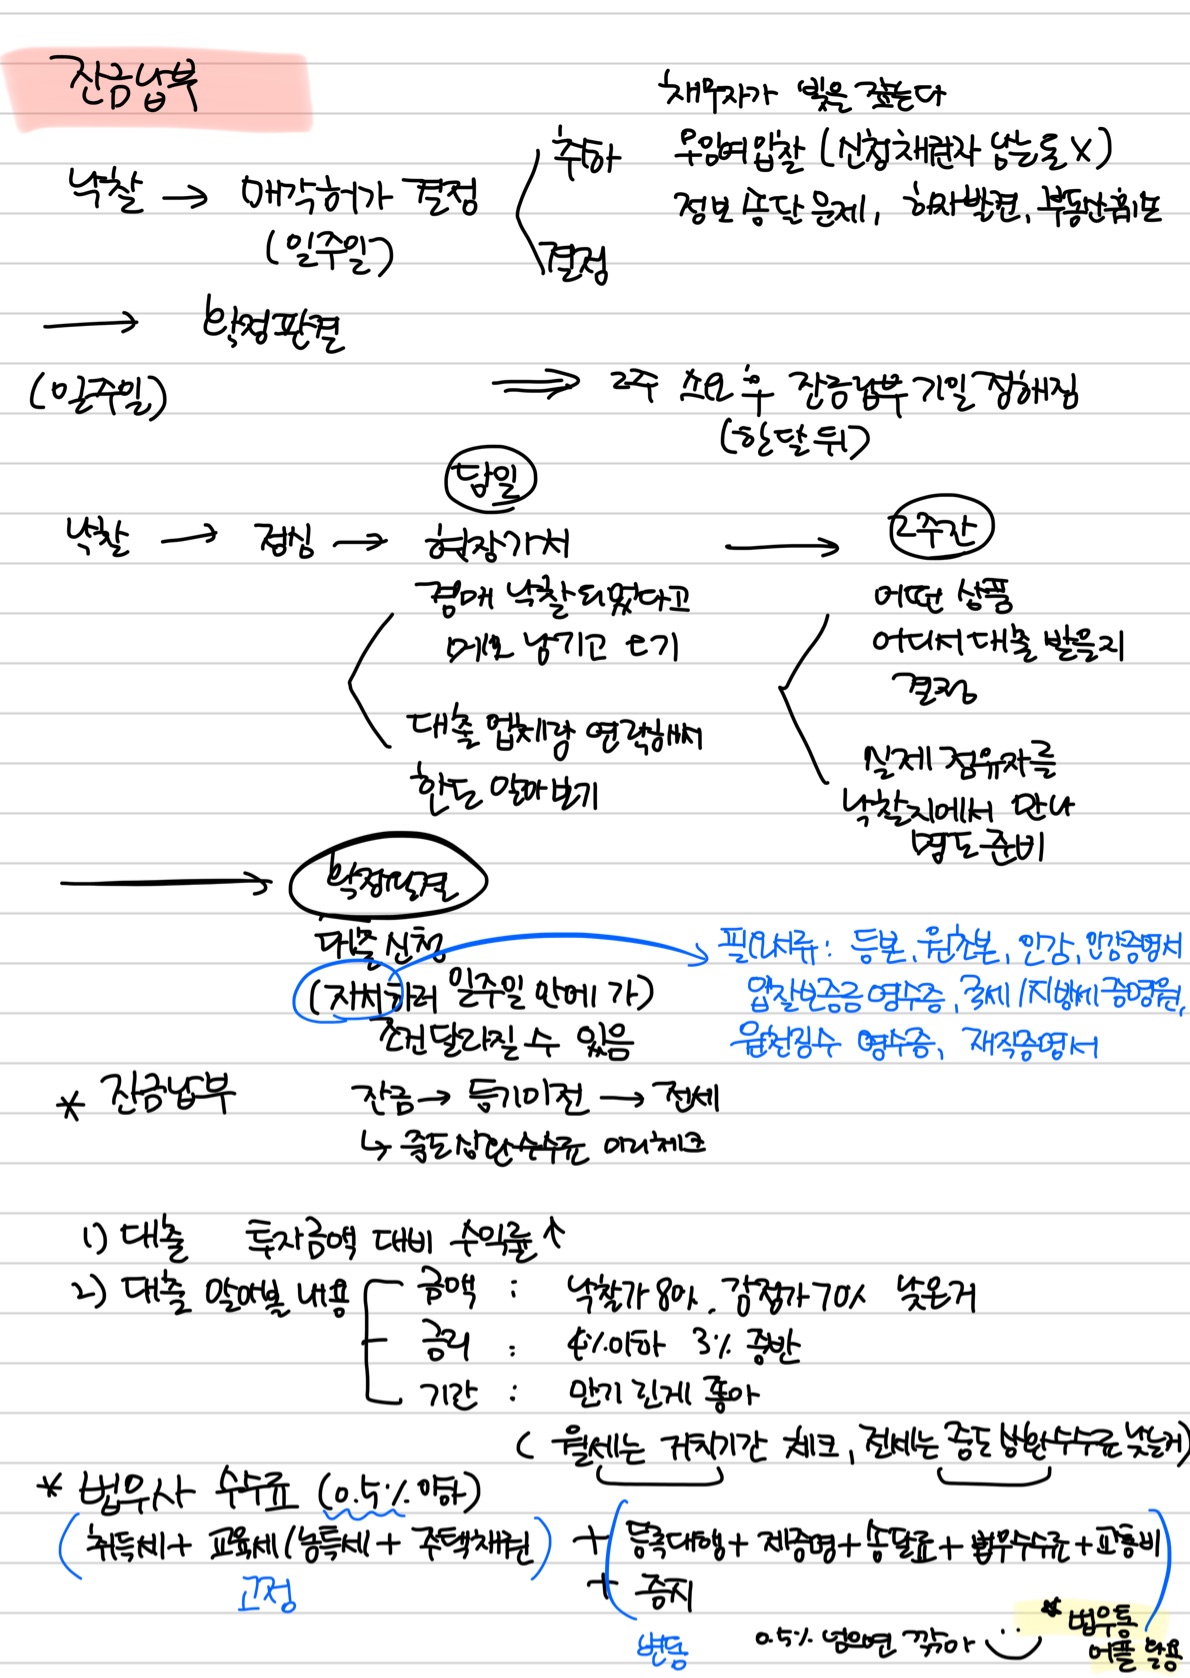 잔금납부
채무자가 빚을 갚는다
낙찰 → 매각허가 결정
(일주일)
취하 무잉여입찰 (신청채권자 남는돈X)
정보 송달 문제, 하자발견, 부동산훼손
결정
→ 확정판결
(일주일)
⇒ 2주 소요 후 잔금납부 기일 정해짐
(한달 뒤)
당일
낙찰 → 점심 → 현장가서
경매 낙찰되었다고
메모 남기고 오기
대출 업체랑 연락해서
한도 알아보기
→ 2주간
어떤 상품
어디서 대출 받을지
결정
실제 점유자를
낙찰지에서 만나
명도 준비
→ 확정판결
대출신청
(자서하러 일주일 안에 가)
조건 달라질 수 있음
필요서류 : 등본, 원초본, 인감, 인감증명서
입찰보증금 영수증, 국세/지방세 증명원,
원천징수 영수증, 재직증명서
* 잔금납부 잔금 → 등기이전 → 전세
↳ 중도상환수수료 미리체크
1) 대출 투자금액 대비 수익률↑
2) 대출 알아볼 내용
금액 : 낙찰가 80%, 감정가 70% 낮은거
금리 : 4%이하 3% 중반
기간 : 만기 긴게 좋아
( 월세는 거치기간 체크, 전세는 중도상환수수료 낮는거)
* 법무사 수수료 (0.5% 이하)
(취득세 + 교육세/농특세 + 주택채권) + (등록대행 + 제증명 + 송달료 + 법무수수료 + 교통비
+ 증지)
고정
변동
0.5% 넘으면 깎아
* 법무통
어플 활용